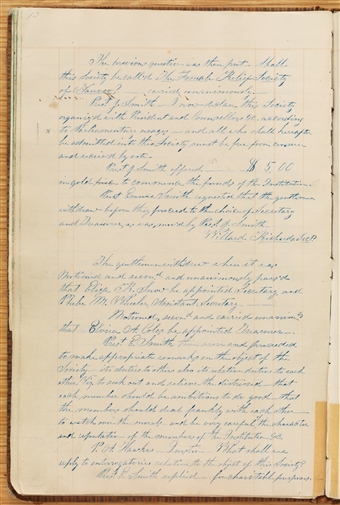 The previous question was then put. Shall
this Society be called The Female Relief Society
of Nauvoo? carried unanimously.
Prest J. Smith I now declare this Society
organized with President and Counsellors &c. according
to Parliamentary usages and all who shall hereafter
be admitted into this Society must be free from censure
and received by vote.
Prest J. Smith offered $5.00
in gold piece to commence the funds of the Institution.
Prest Emma Smith requested that the gentlemen
withdraw before they proceed to the choice of Secretary
and Treasurer, as was moved by Prest J. Smith.
Willard Richards Sec
The gentlemen withdrew when it was
Motioned and second and unanimously passed
that Eliza R. Snow be appointed Secretary and
Phebe M. Wheeler Assistant Secretary
Motioned, second and carried unanimously
that Elvira A. Coles be appointed Treasurer
Prest E. Smith then arose and proceeded
to make appropriate remarks on the object of the
Society its duties to others also its relative duties to each
other Viz. to seek out and relieve the distressed that
each member should be ambitious to do good that
the members should deal frankly with each other
to watch over the morals and be very careful of the character
and reputation of the members of the Institution &c.
P. A. Hawkes Question What shall we
reply to interrogatories relative to the object of this Society?
Prest E. Smith replied for charitable purposes.